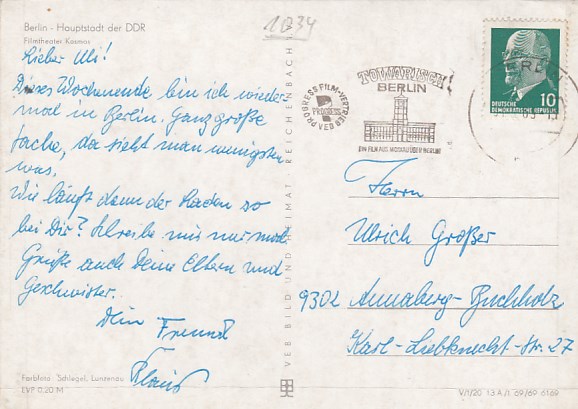 Berlin - Hauptstadt der DDR
Filmtheater Kosmos
1034
Lieber Uli!
Dieses Wochenende bin ich wieder
mal in Berlin. Ganz große
Sache, da sieht man wenigstens
was.
Wie läuft denn der Laden so
bei Dir? Schreibe mir nur mal
Grüße auch Deine Eltern und
Geschwister.
Dein Freund
Klaus
Farbfoto Schlegel, Lunzenau
EVP 0,20 M
VEB BILD UND HEIMAT REICHENBACH
PROGRESS FILM-VERTRIEB VEB
PROGRESS
TOWARISCH
BERLIN
EIN FILM AUS MOSKAU ÜBER BERLIN
DEUTSCHE
DEMOKRATISCHE REPUBLIK
10
Herrn
Ulrich Großer
9302 Annaberg-Buchholz
Karl-Liebknecht-Str. 27
V/1/20 13 A/1 69/69 6169